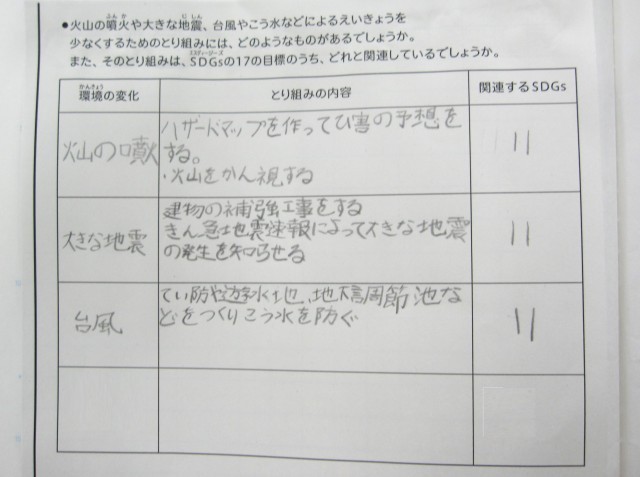 ●火山の噴火や大きな地震、台風やこう水などによるえいきょうを
少なくするためのとり組みには、どのようなものがあるでしょうか。
また、そのとり組みは、SDGsの17の目標のうち、どれと関連しているでしょうか。
環境の変化 とり組みの内容 関連するSDGs
火山の噴火 ハザードマップを作ってひ害の予想を
する。
・火山をかん視する
11
大きな地震 建物の補強工事をする
きん急地震速報によって大きな地震
の発生を知らせる
11
台風 てい防や遊水地、地下調節池な
どをつくりこう水を防ぐ
11